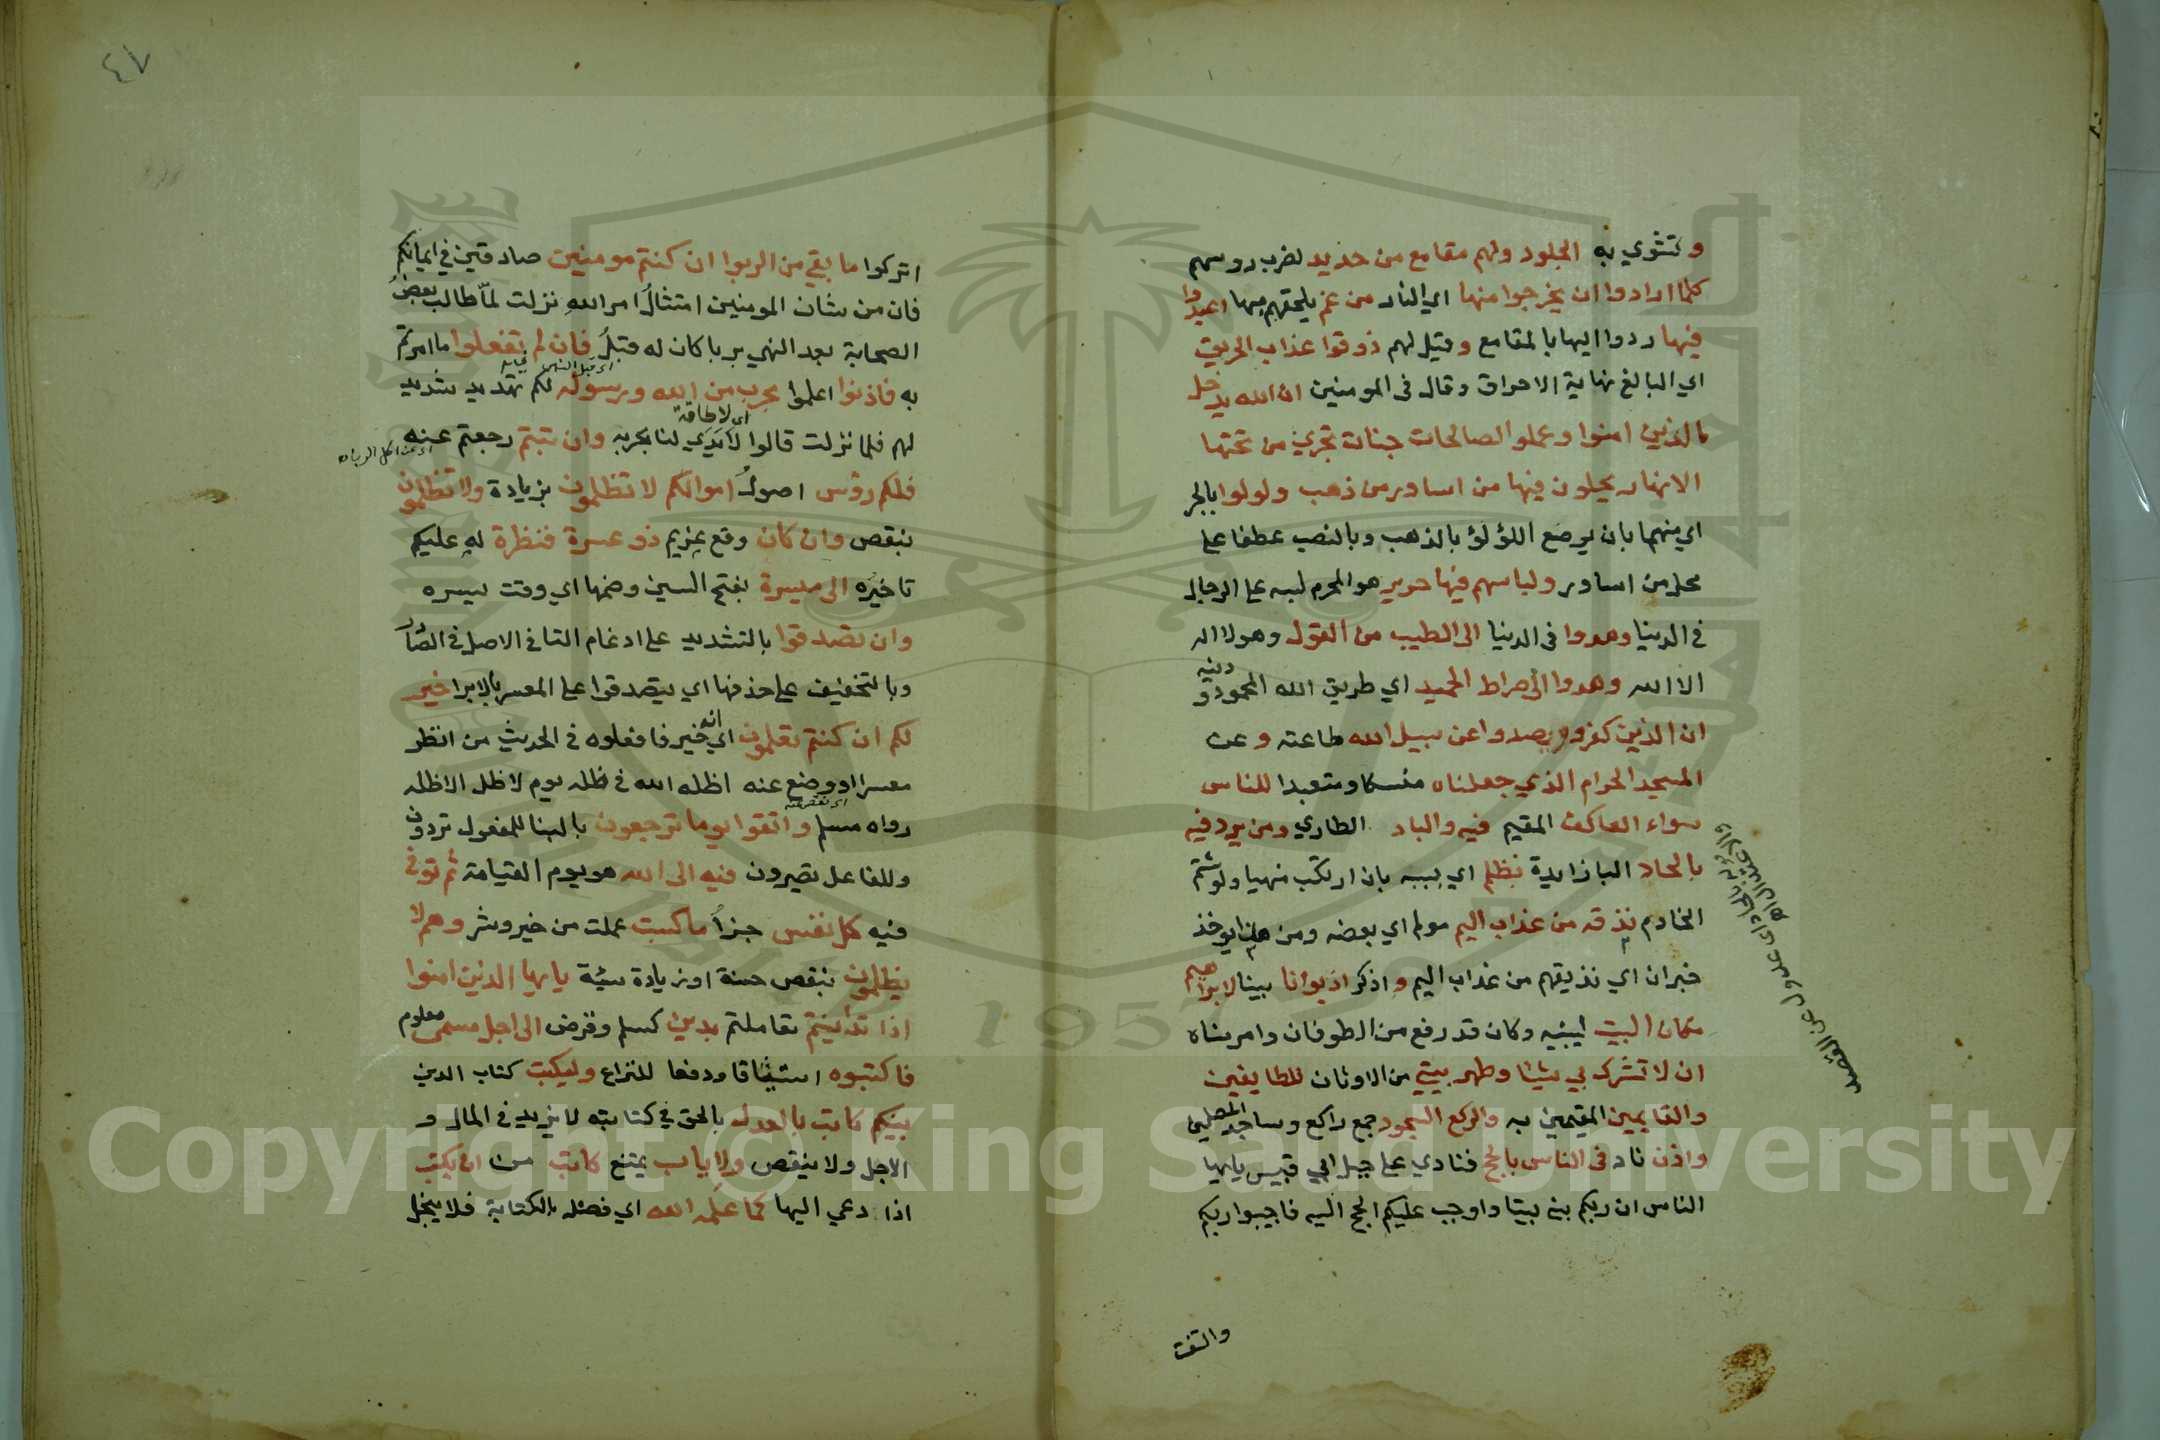 وتشوي به الجلود ولهم مقامع من حديد لضرب روسهم
كلما ارادوا ان يخرجوا منها اي النار من غم يلحقهم بها اعيدوا
فيها ردوا اليها بالمقامع وقيل لهم ذوقوا عذاب الحريق
اي البالغ نهاية الاحراق وقال في المومنين ان الله يدخل
الذين امنوا وعملو الصالحات جنات تجري من تحتها
الانهار يحلون فيها من اساور من ذهب ولولوا بالجر
اي منهما بان يرصع اللؤلؤ بالذهب وبالنصب عطفا على
محل من اساور ولباسهم فيها حرير هو المحرم لبسه على الرجال
في الدنيا وهدوا في الدنيا الى الطيب من القول وهو لا اله
الا الله وهدوا الى صراط الحميد اي طريق الله المحمود ودينه
ان الذين كفروا ويصدوا عن سبيل الله طاعته وعن
المسجد الحرام الذي جعلناه منسكا ومتعبدا للناس
سواء العاكف المقيم فيه والباد الطاري ومن يرد فيه
بالحاد البا زايدة بظلم اي بسببه بان ارتكب منهيا ولو شتم
الخادم نذقه من عذاب اليم مولم اي بعضه ومن هذا يوخذ
خبر ان اي نذيقهم من عذاب اليم واذكر اذ بوانا بينا لابراهيم
مكان البيت ليبنيه وكان قد رفع من الطوفان وامرناه
ان لا تشرك بي شيئا وطهر بيتي من الاوثان للطايفين
والقايمين المقيمين به والركع السجود جمع راكع وساجد المصلين
واذن ناد في الناس بالحج فنادي على جبل ابي قبيس يايها
الناس ان ربكم بنى بيتا واوجب عليكم الحج اليه فاجيبوا ربكم
والتفت
٤٧
اتركوا ما بقي من الربوا ان كنتم مومنين صادقين في ايمانكم
فان من شان المومنين امتثال امر الله نزلت لما طالب بعض
الصحابة بعد النهي بربا كان له قبل فان لم تفعلوا ما امرتم
به فاذنوا اعلموا بحرب من الله ورسوله لكم تهديد شديد
اي لا طاقة
لهم فلما نزلت قالوا لا يدي لنا بحربه وان تبتم رجعتم عنه
فلكم رؤس اصول اموالكم لا تظلمون بزيادة ولا تظلمون
بنقص وان كان وقع غريم ذو عسرة فنظرة له عليكم
تاخيره الى ميسرة بفتح السين وضمها اي وقت يسره
وان تصدقوا بالتشديد على ادغام التا في الاصل في الصاد
وبالتخفيف على حذفها اي يتصدقوا على المعسر بالابرا خير
لكم ان كنتم تعلمون اي انه خير فافعلوه في الحديث من انظر
معسرا او وضع عنه اظله الله في ظله يوم لا ظل الا ظله
رواه مسلم واتقوا يوما ترجعون بالبنا للمفعول تردون
وللفاعل تصيرون فيه الى الله هو يوم القيامة ثم توفى
فيه كل نفس جزا ما كسبت عملت من خير وشر وهم لا
يظلمون بنقص حسنة او زيادة سيئة يايها الذين امنوا
اذا تداينتم تعاملتم بدين كسلم وقرض الى اجل مسمى معلوم
فاكتبوه استيثاقا ودفعا للنزاع وليكتب كتاب الدين
بينكم كاتب بالعدل بالحق في كتابته لا يزيد في المال و
الاجل ولا ينقص ولا ياب يمتنع كاتب من ان يكتب
اذا دعي اليها كما علمه الله اي فضله بالكتابة فلا يبخل
1957
Copyright © King Saud University